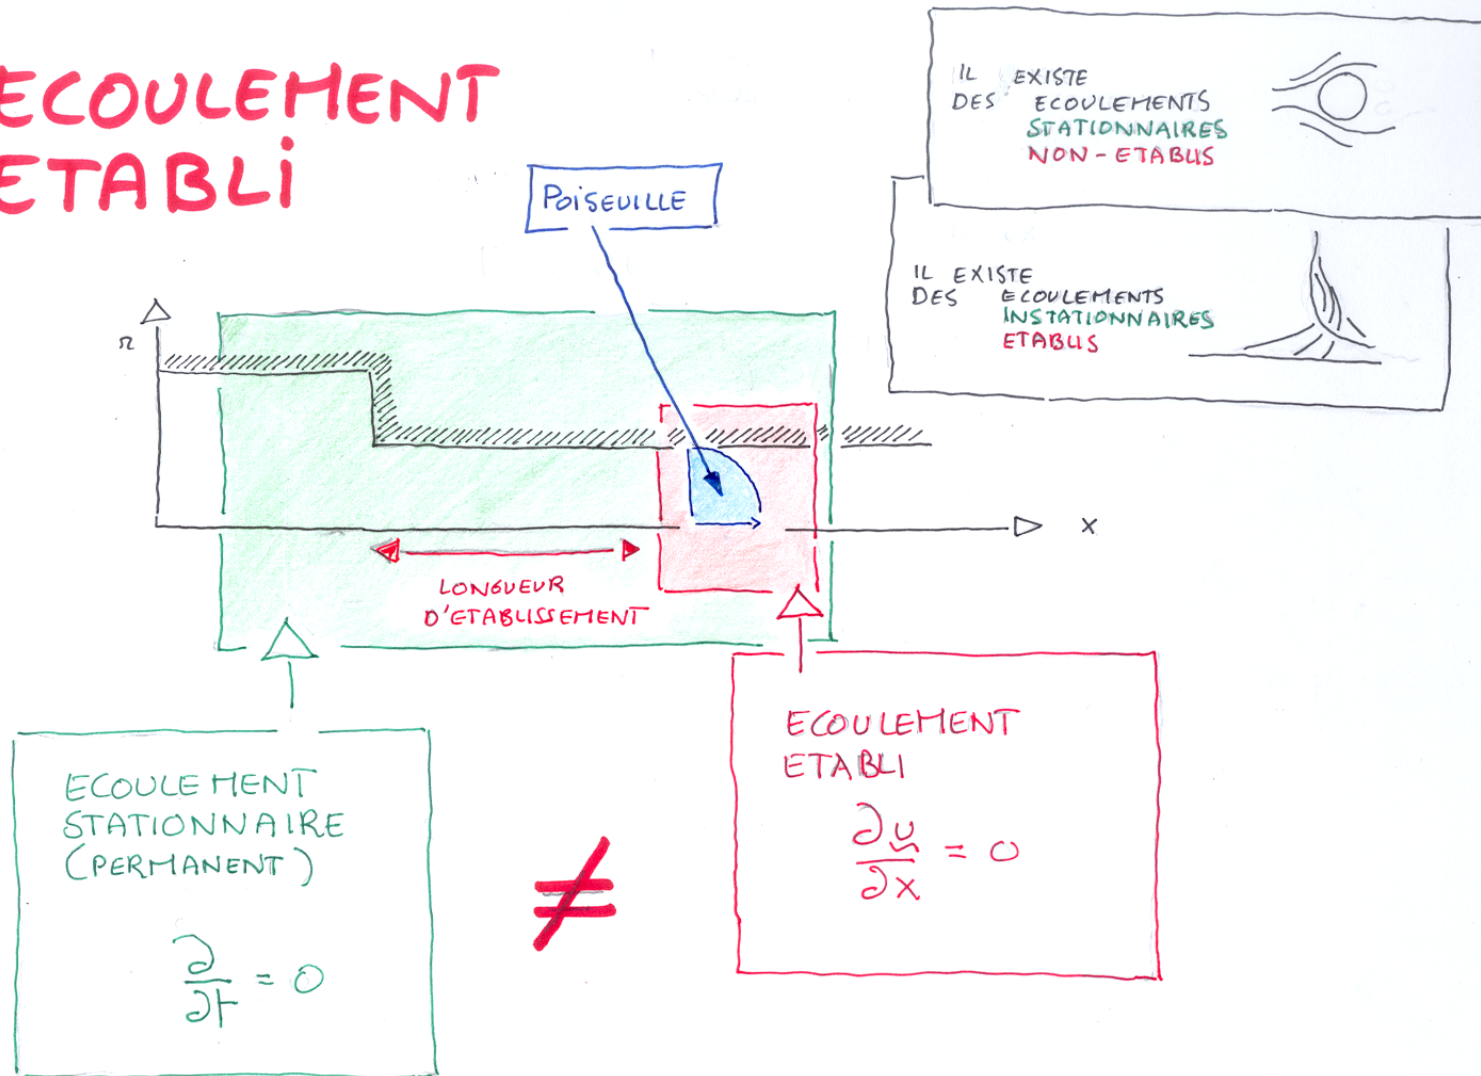 ECOULEMENT
ETABLi
IL EXISTE
DES ECOULEMENTS
STATIONNAIRES
NON-ETABLIS
POISEUILLE
IL EXISTE
DES ECOULEMENTS
INSTATIONNAIRES
ETABLIS
r
x
LONGUEUR
D'ETABLISSEMENT
ECOULEMENT
STATIONNAIRE
(PERMANENT)
∂/∂t = 0
≠
ECOULEMENT
ETABLI
∂u/∂x = 0